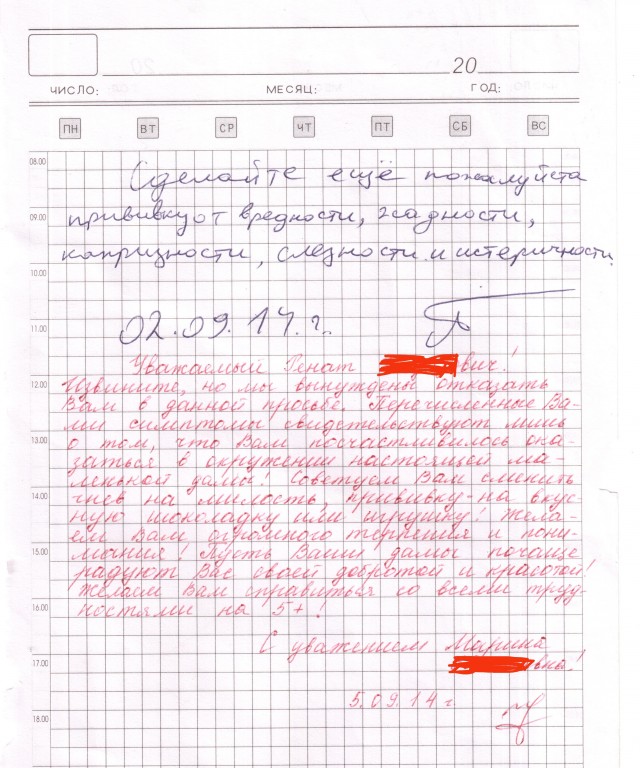 20
ЧИСЛО: МЕСЯЦ: ГОД:
ПН ВТ СР ЧТ ПТ СБ ВС
08.00
Сделайте ещё пожалуйста
09.00
прививку от вредности, жадности,
капризности, слезности и истеричности.
10.00
11.00
02.09.14.г.
Уважаемый Ренат вич!
12.00
Извините, но мы вынуждены отказать
Вам в данной просьбе. Перечисленные Ва-
ми симптомы свидетельствуют лишь
13.00
о том, что Вам посчастливилось ока-
заться в окружении настоящей ма-
ленькой дамы! Советуем Вам сменить
14.00
гнев на милость, прививку - на вкус-
ную шоколадку или игрушку! Жела-
ем Вам огромного терпения и пони-
15.00
мания! Пусть Ваши дамы почаще
радуют Вас своей добротой и красотой!
Желаем Вам справиться со всеми труд-
16.00
ностями на 5+!
С уважением Марина
17.00
вна!
5.09.14 г.
18.00